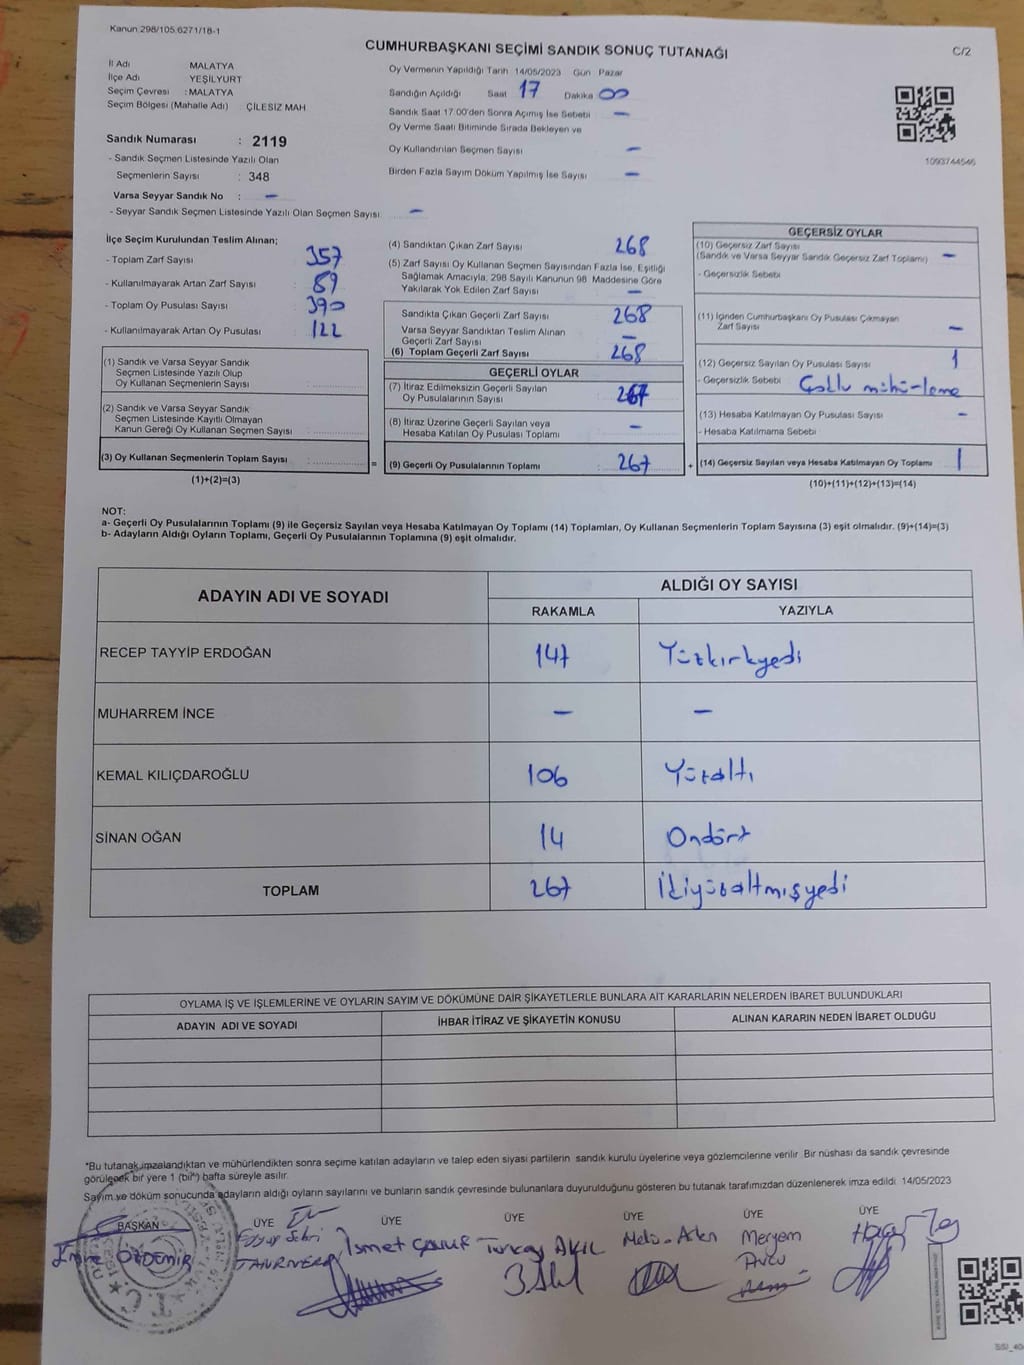 Kanun 298/105,6271/18-1
CUMHURBAŞKANI SEÇİMİ SANDIK SONUÇ TUTANAĞI
C/2
İl Adı MALATYA
İlçe Adı YEŞİLYURT
Seçim Çevresi : MALATYA
Seçim Bölgesi (Mahalle Adı) ÇİLESİZ MAH
Sandık Numarası : 2119
- Sandık Seçmen Listesinde Yazılı Olan
Seçmenlerin Sayısı : 348
Varsa Seyyar Sandık No : -
- Seyyar Sandık Seçmen Listesinde Yazılı Olan Seçmen Sayısı -
Oy Vermenin Yapıldığı Tarih 14/05/2023 Gün Pazar
Sandığın Açıldığı Saat 17 Dakika 00
Sandık Saat 17.00'den Sonra Açımış İse Sebebi -
Oy Verme Saati Bitiminde Sırada Bekleyen ve
Oy Kullandırılan Seçmen Sayısı -
Birden Fazla Sayım Döküm Yapılmış İse Sayısı -
1093744546
İlçe Seçim Kurulundan Teslim Alınan;
- Toplam Zarf Sayısı : 357
- Kullanılmayarak Artan Zarf Sayısı : 89
- Toplam Oy Pusulası Sayısı : 390
- Kullanılmayarak Artan Oy Pusulası : 122
(1) Sandık ve Varsa Seyyar Sandık
Seçmen Listesinde Yazılı Olup
Oy Kullanan Seçmenlerin Sayısı :
(2) Sandık ve Varsa Seyyar Sandık
Seçmen Listesinde Kayıtlı Olmayan
Kanun Gereği Oy Kullanan Seçmen Sayısı :
(3) Oy Kullanan Seçmenlerin Toplam Sayısı : =
(1)+(2)=(3)
(4) Sandıktan Çıkan Zarf Sayısı 268
(5) Zarf Sayısı Oy Kullanan Seçmen Sayısından Fazla İse, Eşitliği
Sağlamak Amacıyla; 298 Sayılı Kanunun 98. Maddesine Göre
Yakılarak Yok Edilen Zarf Sayısı -
Sandıkta Çıkan Geçerli Zarf Sayısı 268
Varsa Seyyar Sandıktan Teslim Alınan
Geçerli Zarf Sayısı -
(6) Toplam Geçerli Zarf Sayısı 268
GEÇERLİ OYLAR
(7) İtiraz Edilmeksizin Geçerli Sayılan
Oy Pusulalarının Sayısı 267
(8) İtiraz Üzerine Geçerli Sayılan veya
Hesaba Katılan Oy Pusulası Toplamı -
(9) Geçerli Oy Pusulalarının Toplamı 267 +
GEÇERSİZ OYLAR
(10) Geçersiz Zarf Sayısı
(Sandık ve Varsa Seyyar Sandık Geçersiz Zarf Toplamı) -
- Geçersizlik Sebebi
(11) İçinden Cumhurbaşkanı Oy Pusulası Çıkmayan
Zarf Sayısı -
(12) Geçersiz Sayılan Oy Pusulası Sayısı 1
- Geçersizlik Sebebi Çoklu mühürleme
(13) Hesaba Katılmayan Oy Pusulası Sayısı -
- Hesaba Katılmama Sebebi
(14) Geçersiz Sayılan veya Hesaba Katılmayan Oy Toplamı 1
(10)+(11)+(12)+(13)=(14)
NOT:
a- Geçerli Oy Pusulalarının Toplamı (9) ile Geçersiz Sayılan veya Hesaba Katılmayan Oy Toplamı (14) Toplamları, Oy Kullanan Seçmenlerin Toplam Sayısına (3) eşit olmalıdır. (9)+(14)=(3)
b- Adayların Aldığı Oyların Toplamı, Geçerli Oy Pusulalarının Toplamına (9) eşit olmalıdır.
ADAYIN ADI VE SOYADI
ALDIĞI OY SAYISI
RAKAMLA YAZIYLA
RECEP TAYYİP ERDOĞAN 147 Yüzkırkyedi
MUHARREM İNCE - -
KEMAL KILIÇDAROĞLU 106 Yüzaltı
SİNAN OĞAN 14 Ondört
TOPLAM 267 İkiyüzaltmışyedi
OYLAMA İŞ VE İŞLEMLERİNE VE OYLARIN SAYIM VE DÖKÜMÜNE DAİR ŞİKAYETLERLE BUNLARA AİT KARARLARIN NELERDEN İBARET BULUNDUKLARI
ADAYIN ADI VE SOYADI İHBAR İTİRAZ VE ŞİKAYETİN KONUSU ALINAN KARARIN NEDEN İBARET OLDUĞU
*Bu tutanak imzalandıktan ve mühürlendikten sonra seçime katılan adayların ve talep eden siyasi partilerin sandık kurulu üyelerine veya gözlemcilerine verilir. Bir nüshası da sandık çevresinde
görülecek bir yere 1 (bir) hafta süreyle asılır.
Sayım ve döküm sonucunda adayların aldığı oyların sayılarını ve bunların sandık çevresinde bulunanlara duyurulduğunu gösteren bu tutanak tarafımızdan düzenlenerek imza edildi. 14/05/2023
BAŞKAN ÜYE ÜYE ÜYE ÜYE ÜYE ÜYE
Emre ÖZDEMİR
TANRIVERDİ
İsmet ÇANUR
Türkay AKIL
Meryem
Avcu
T.C.